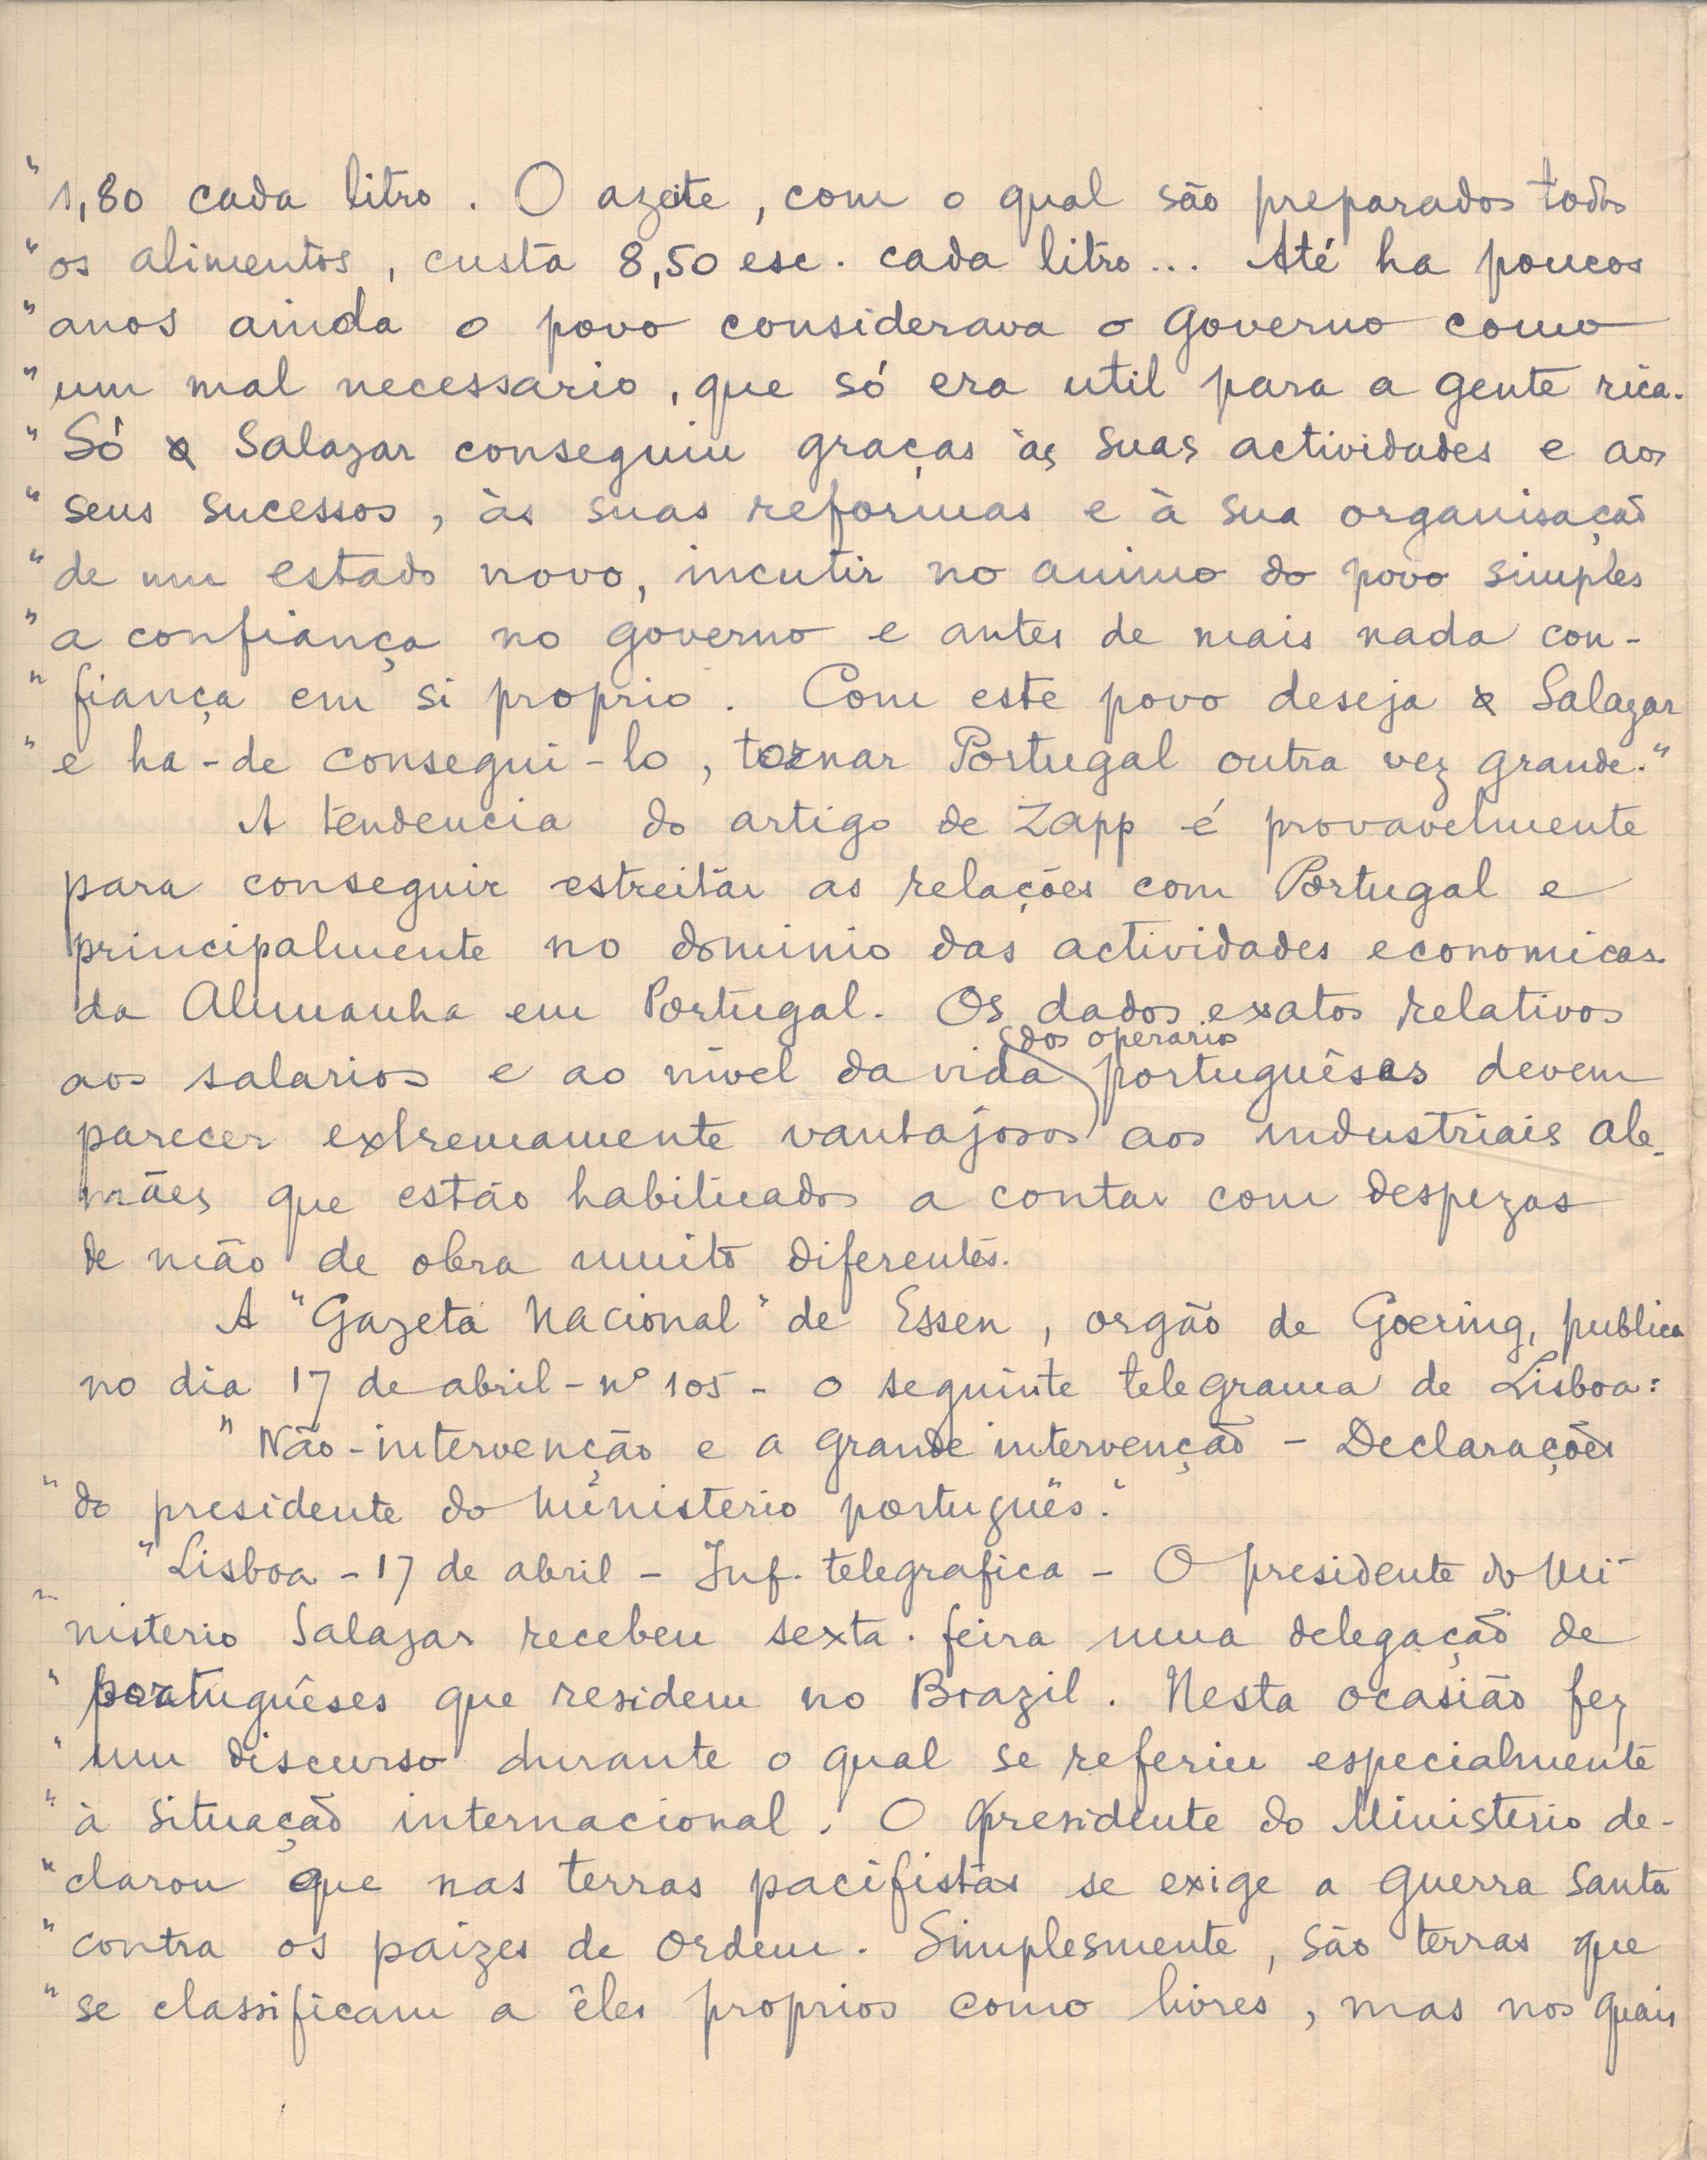 "1,80 cada litro. O azeite, com o qual são preparados todos
"os alimentos, custa 8,50 esc. cada litro... Até ha poucos
"anos ainda o povo considerava o governo como
"um mal necessario, que só era util para a gente rica.
"Só o Salazar conseguiu graças às suas actividades e aos
"seus sucessos, às suas reformas e à sua organisação
"de um estado novo, incutir no animo do povo simples
"a confiança no governo e antes de mais nada con-
"fiança em si proprio. Com este povo deseja o Salazar
"e ha-de consegui-lo, tornar Portugal outra vez grande."
A tendencia do artigo de Zapp é provavelmente
para conseguir estreitar as relações com Portugal e
principalmente no dominio das actividades economicas
da Alemanha em Portugal. Os dados exatos relativos
dos operarios
aos salarios e ao nivel da vida portuguêses devem
parecer extremamente vantajosos aos industriais ale-
mães que estão habituados a contar com despezas
de mão de obra muito diferentes.
A "Gazeta Nacional" de Essen, orgão de Goering, publica
no dia 17 de abril - nº 105 - o seguinte telegrama de Lisboa:
"Não-intervenção e a grande intervenção - Declarações
"do presidente do Ministerio português."
"Lisboa - 17 de abril - Inf. telegrafica - O presidente do Mi-
"nisterio Salazar recebeu sexta-feira uma delegação de
"portuguêses que residem no Brazil. Nesta ocasião fez
"um discurso durante o qual se referiu especialmente
"à situação internacional. O presidente do Ministerio de-
"clarou que nas terras pacifistas se exige a guerra santa
"contra os paizes de ordem. Simplesmente, são terras que
"se classificam a êles proprios como livres, mas nos quais